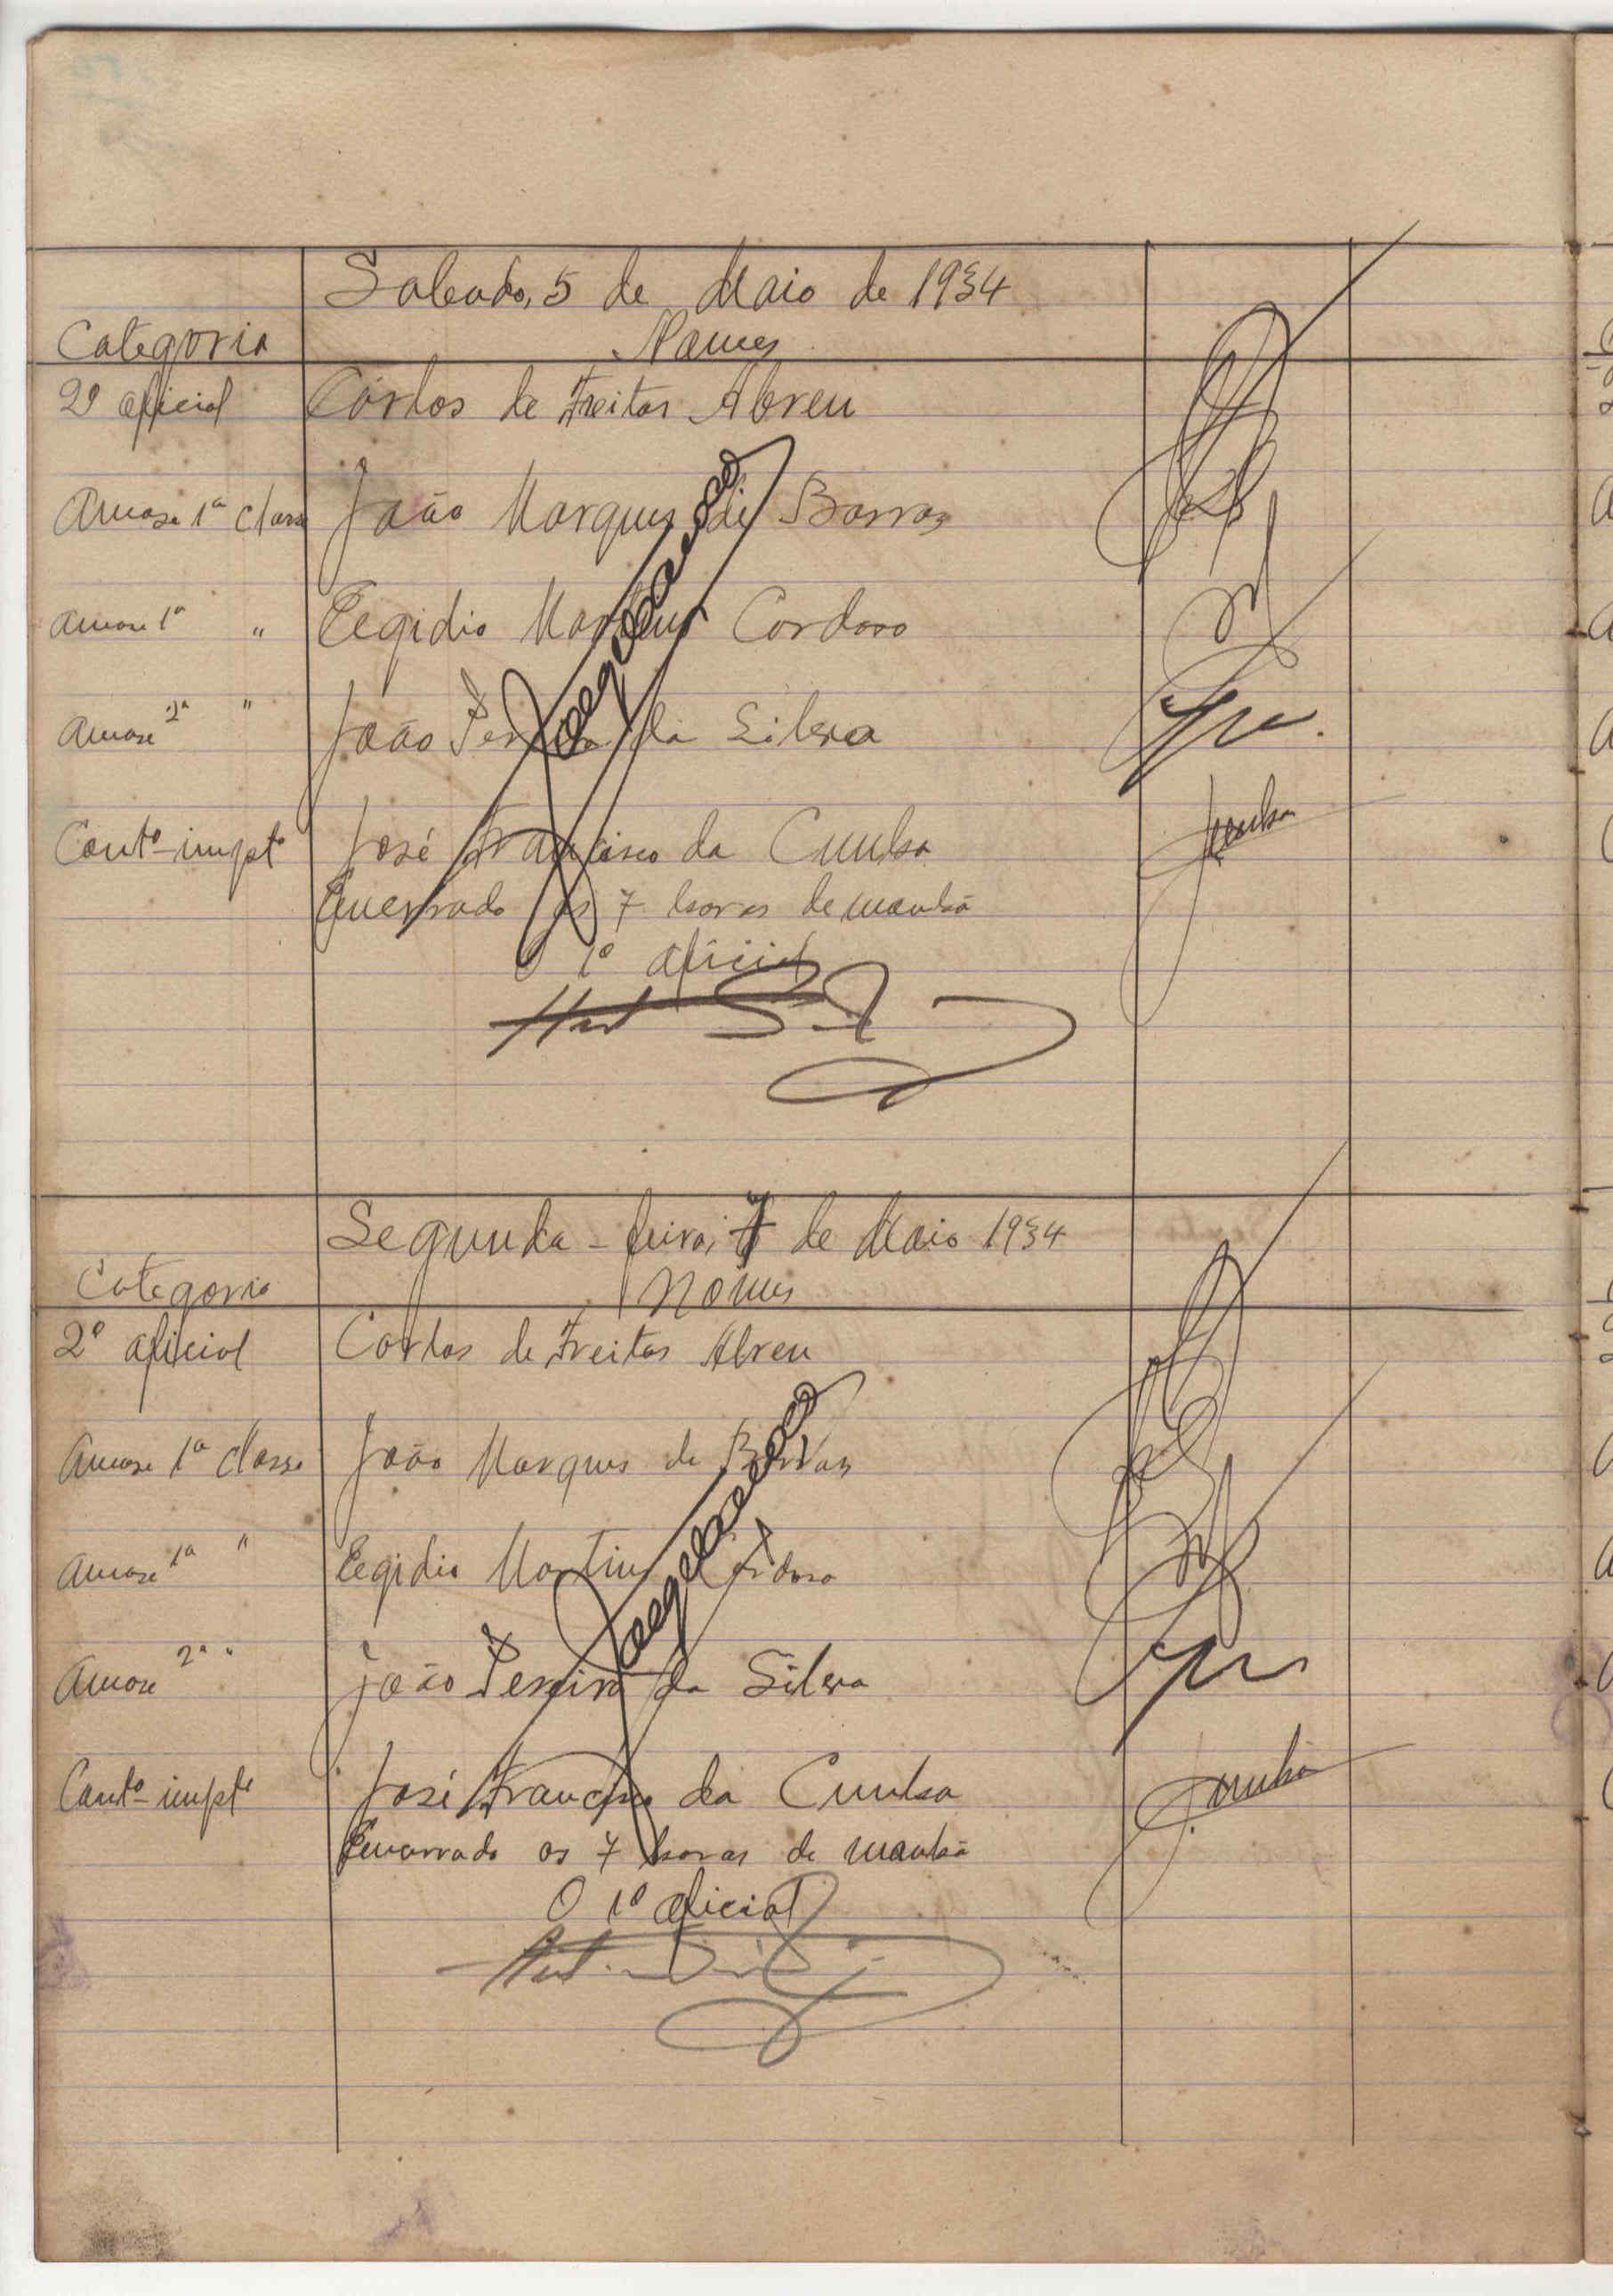 Sabado, 5 de Maio de 1934
Categoria Nomes
2º oficial Carlos de Freitas Abreu
Amanse 1ª classe João Marques de Barros
Amanse 1ª " Eegidio Martins Cardoso
Amanse 2ª " João Pereira da Silva
Contº impte José Francisco da Cunha Cunha
Encerrado ás 7 horas de manhã
O 1º oficial
Segunda-feira, 7 de Maio 1934
Categoria Nomes
2º oficial Carlos de Freitas Abreu
Amanse 1ª classe João Marques de Barros
Amanse 1ª " Eegidio Martins Cardoso
Amanse 2ª " João Pereira da Silva
Contº impte José Francisco da Cunha Cunha
Encerrado as 7 horas de manhã
O 1º oficial